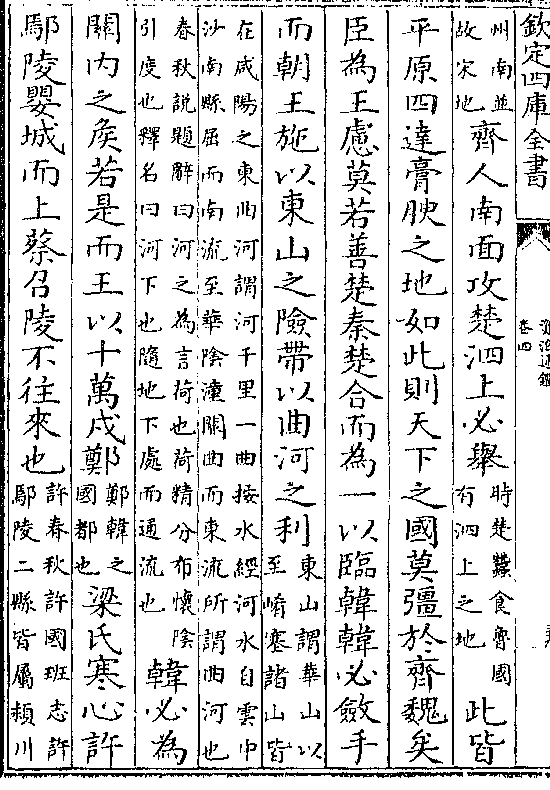 欽定四庫全書
資治通鑑
卷四
州南並故宋地齊人南面攻楚泗上必舉時楚蠶食魯國有泗上之地此皆
平原四達膏腴之地如此則天下之國莫彊於齊魏矣
臣為王慮莫若善楚秦楚合而為一以臨韓韓必斂手
而朝王施以東山之險帶以曲河之利東山謂華山以至崤塞諸山皆
在咸陽之東曲河謂河千里一曲按水經河水自雲中沙南縣屈而南流至華陰潼關曲而東流所謂曲河也
春秋說題辭曰河之為言荷也荷精分布懷陰引度也釋名曰河下也隨地下處而通流也韓必為
關内之侯若是而王以十萬戍鄭鄭韓之國都也梁氏寒心許
鄢陵嬰城而上蔡召陵不往來也許春秋許國班志許鄢陵二縣皆屬潁川